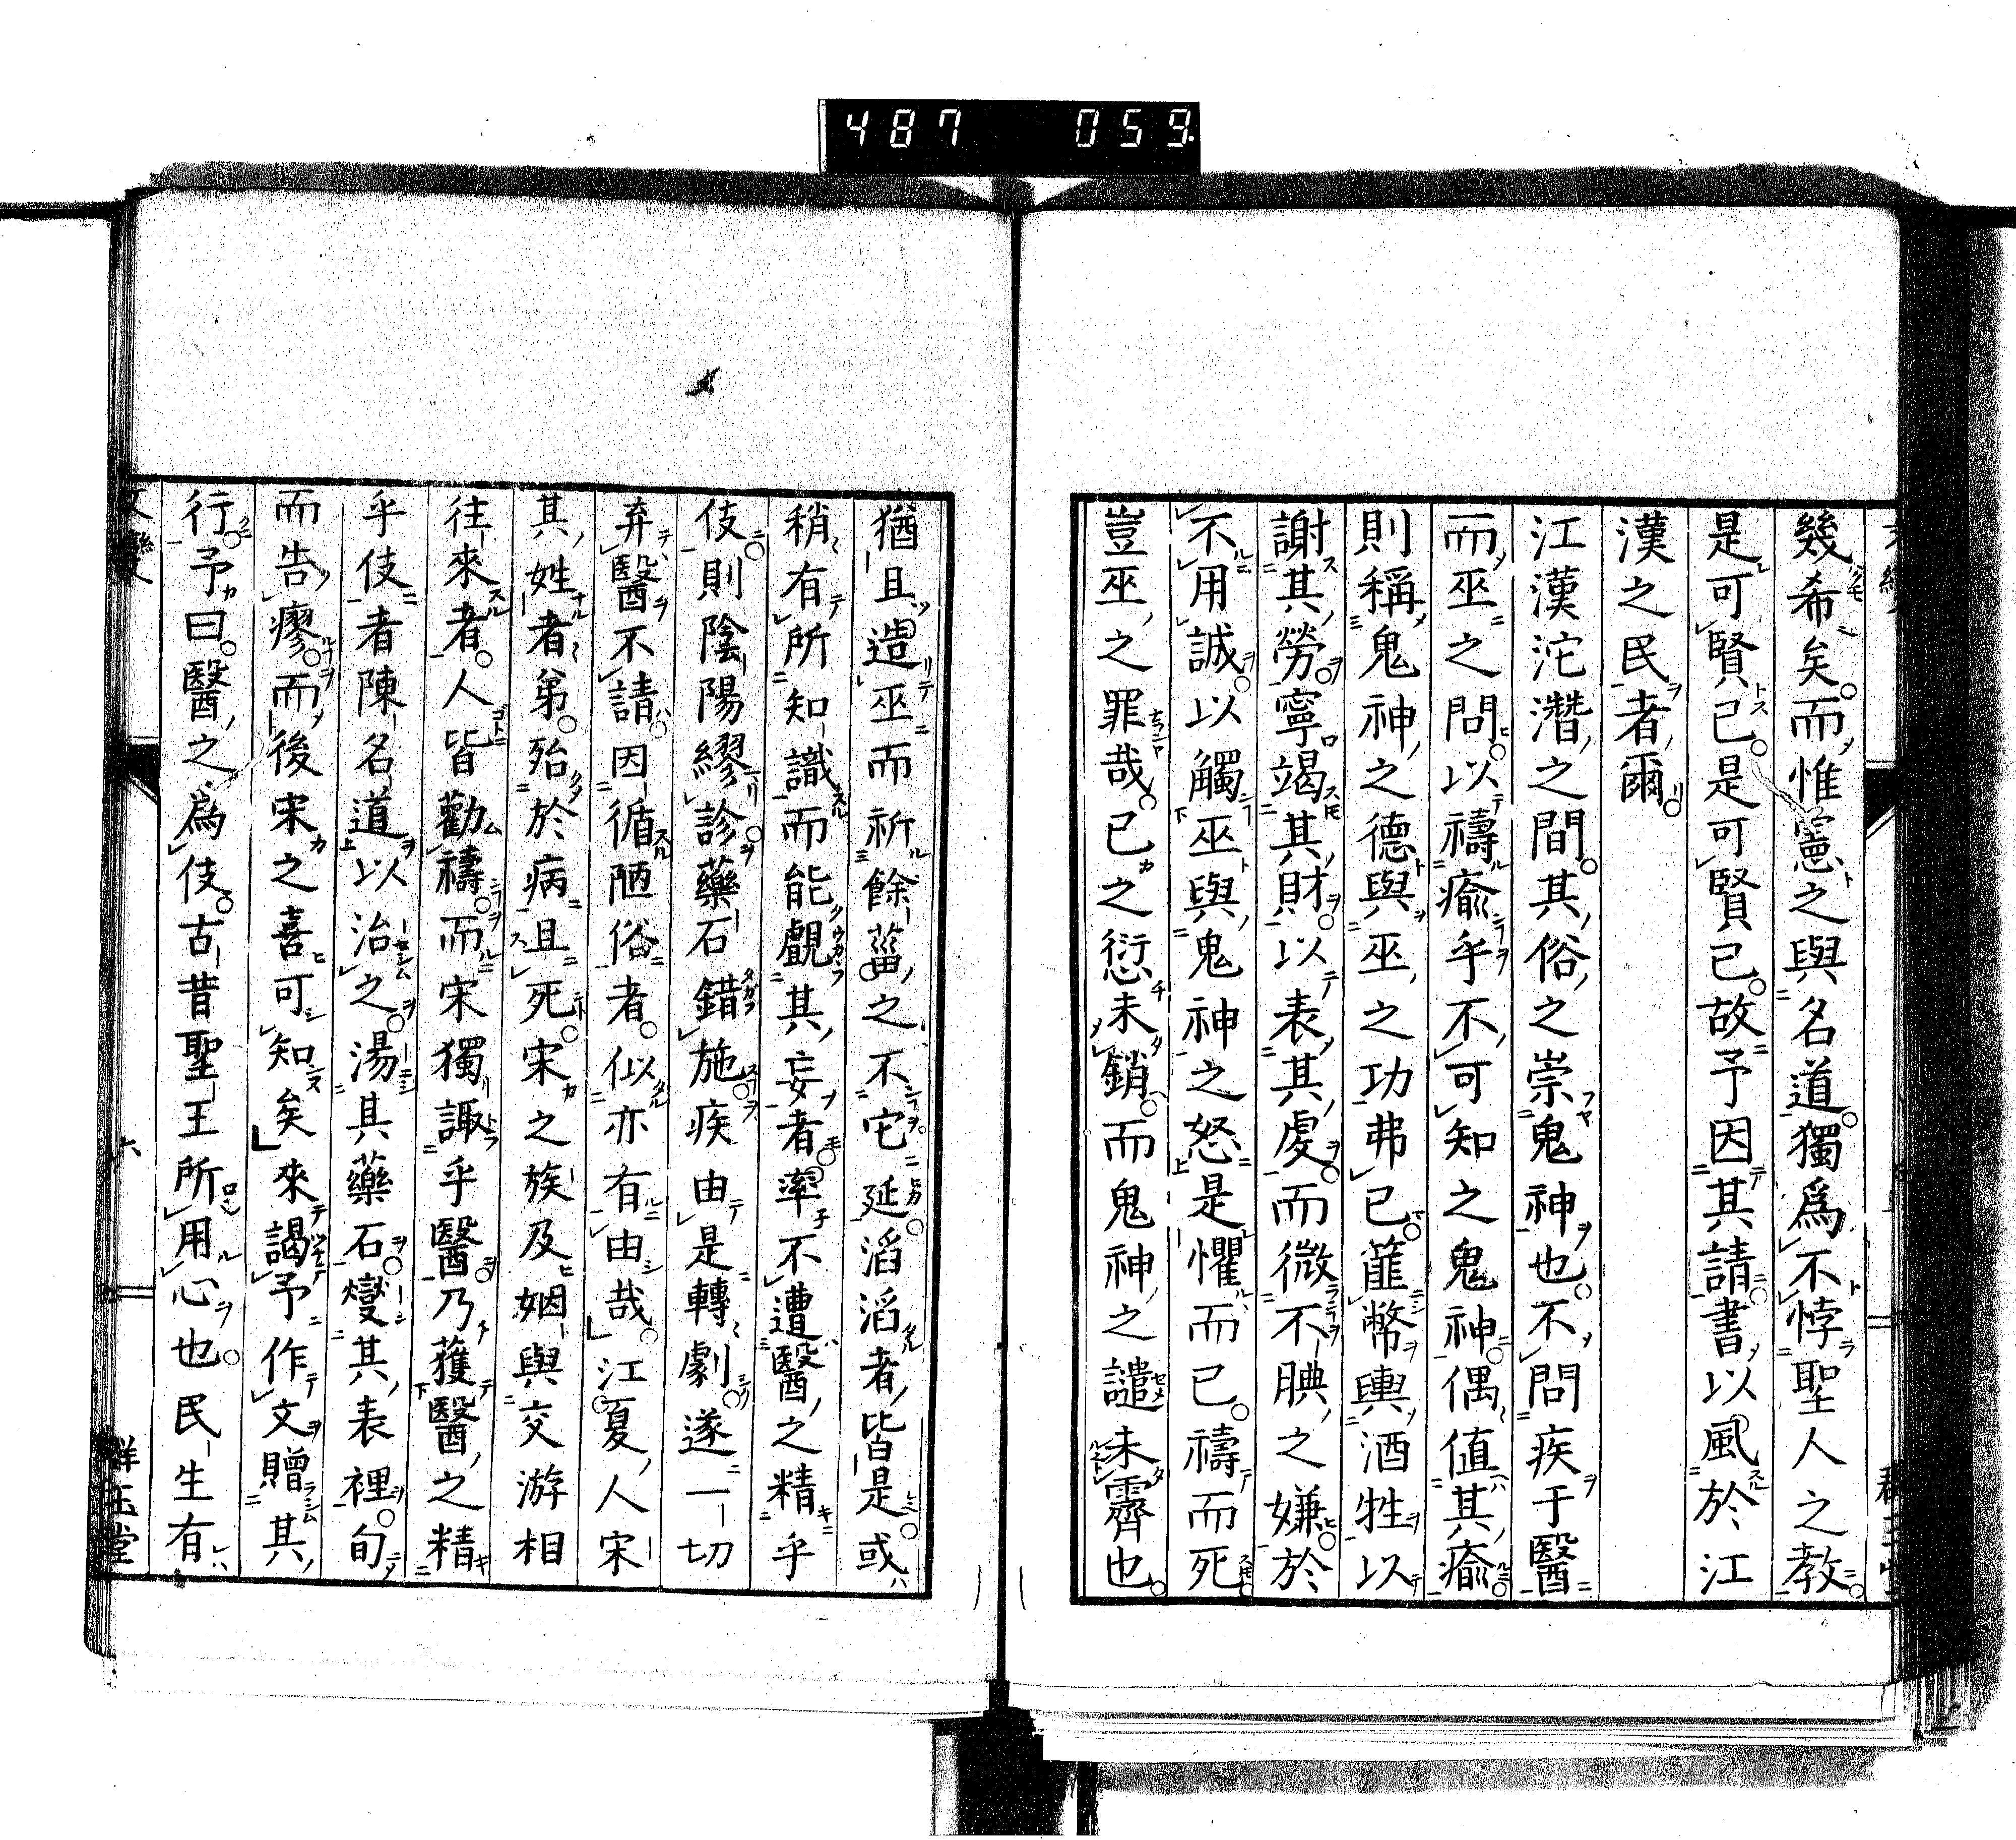 487 059
幾希矣而惟憲之與名道獨爲不悖聖人之教
是可賢已是可賢已故予因其請書以風於江
漢之民者爾
江漢沱潛之間其俗之崇鬼神也不問疾于醫
而巫之問以禱瘉乎不可知之鬼神偶值其瘉
則稱鬼神之德與巫之功弗已篚幣輿酒牲以
謝其勞寧竭其財以表其虔而微不腆之嫌於
不用誠以觸巫與鬼神之怒是懼而已禱而死
豈巫之罪哉已之愆未銷而鬼神之譴未霽也
猶且造巫而祈餘菑之不它延滔滔者皆是或
稍有所知識而能覰其妄者率不遭醫之精乎
伎則陰陽繆診藥石錯施疾由是轉劇遂一切
弃醫不請因循陋俗者似亦有由哉江夏人宋
其姓者弟殆於病且死宋之族及姻與交游相
往來者人皆勸禱而宋獨諏乎醫乃獲醫之精
乎伎者陳名道以治之湯其藥石燮其表裡旬
而告瘳而後宋之喜可知矣來謁予作文贈其
行予曰醫之爲伎古昔聖王所用心也民生有
六
群玉堂